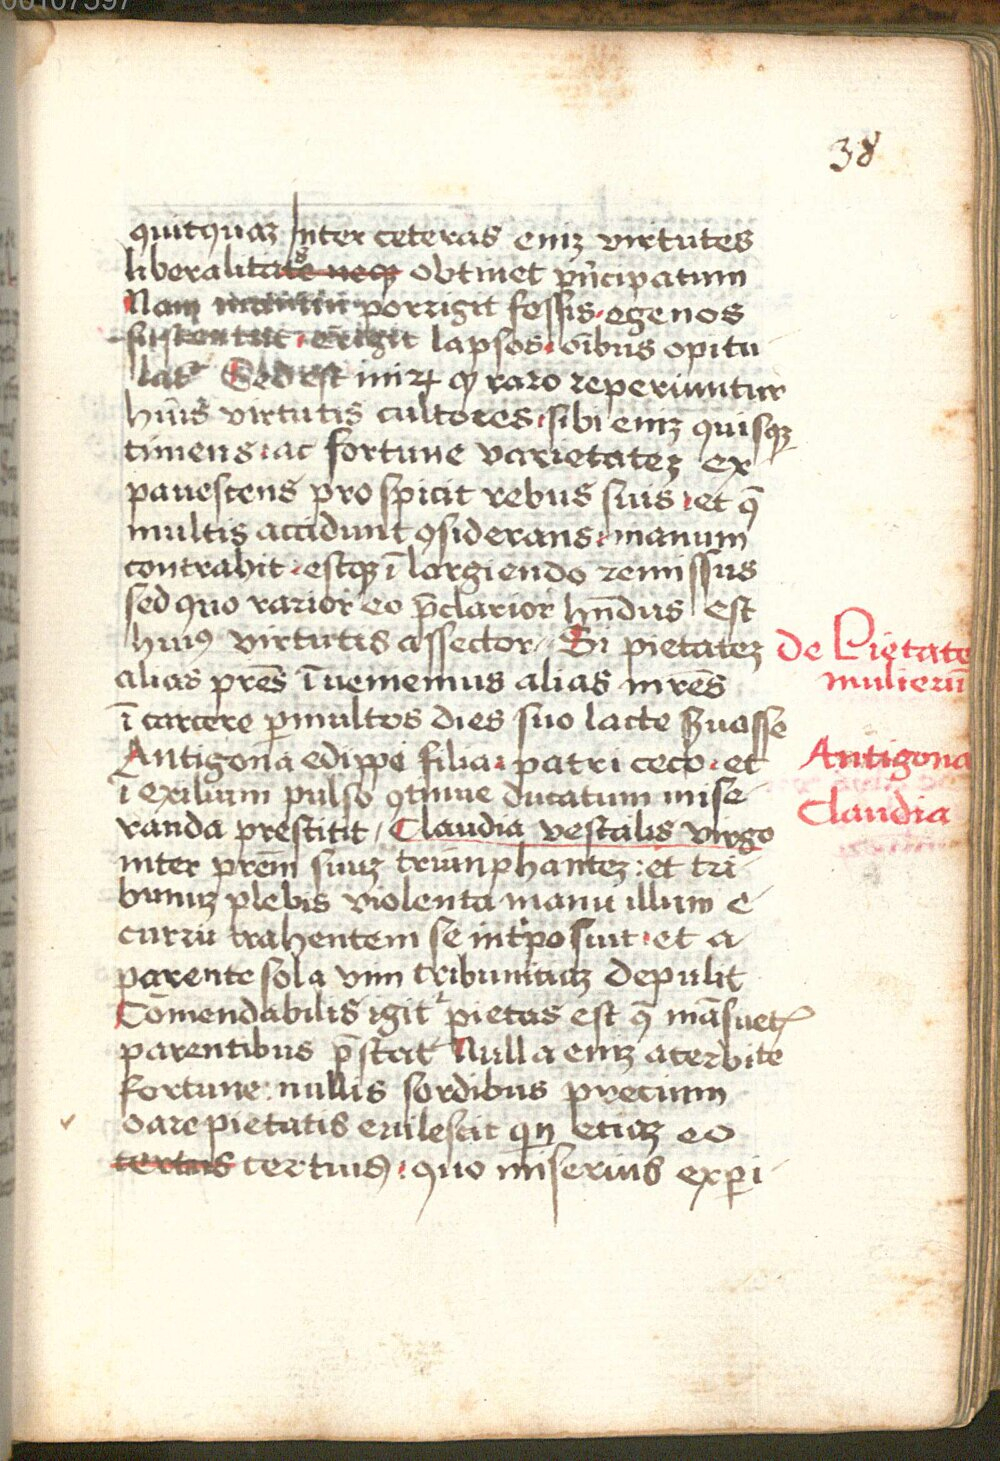 00107597
38
quitquaꝫ Inter ceteras eniꝫ virtutes
liberalitas obtinet pn̄cipatum
Nam porrigit fessis egenos
sustentat erigit lapsos oībus opitu
lat̄ Sed est mirꝝ ꝙ raro reperiuntur
huiꝰ virtutis cultores sibi eniꝫ quisqꝫ
timens ac fortune varietateꝫ ex
pauescens prospicit rebus suis et q̄
multis accidunt ꝯsiderans manum
contrahit estqꝫ ī largiendo remissus
sed quo rarior eo p̄clarior hn̄dus est
huiꝰ virtutis assector Si pietateꝫ
alias pr̄es īuenimus alias mr̄es
ī carcere ꝑmultos dies suo lacte ẜuasse
Antigona edippi filia patri ceco et
ī exilium pulso ꝯtinue ducatum mise
randa prestitit Claudia vestalis virgo
inter prēm suuꝫ triunphanteꝫ et tri
bunuꝫ plebis violenta manu illum e
curru trahentem se int̄posuit et a
parente sola vim tribunitiaꝫ depulit
Cōmendabilis igit᷑ pietas est q̄ māsuet
parentibus p̄stat᷑ Nulla eniꝫ acerbite
fortune nullis sordibus precium
care pietatis euilescit qn̄ etiaꝫ eo
tertius certius quo miserius exꝑi
de Pietate
mulierū
Antigona
Claudia